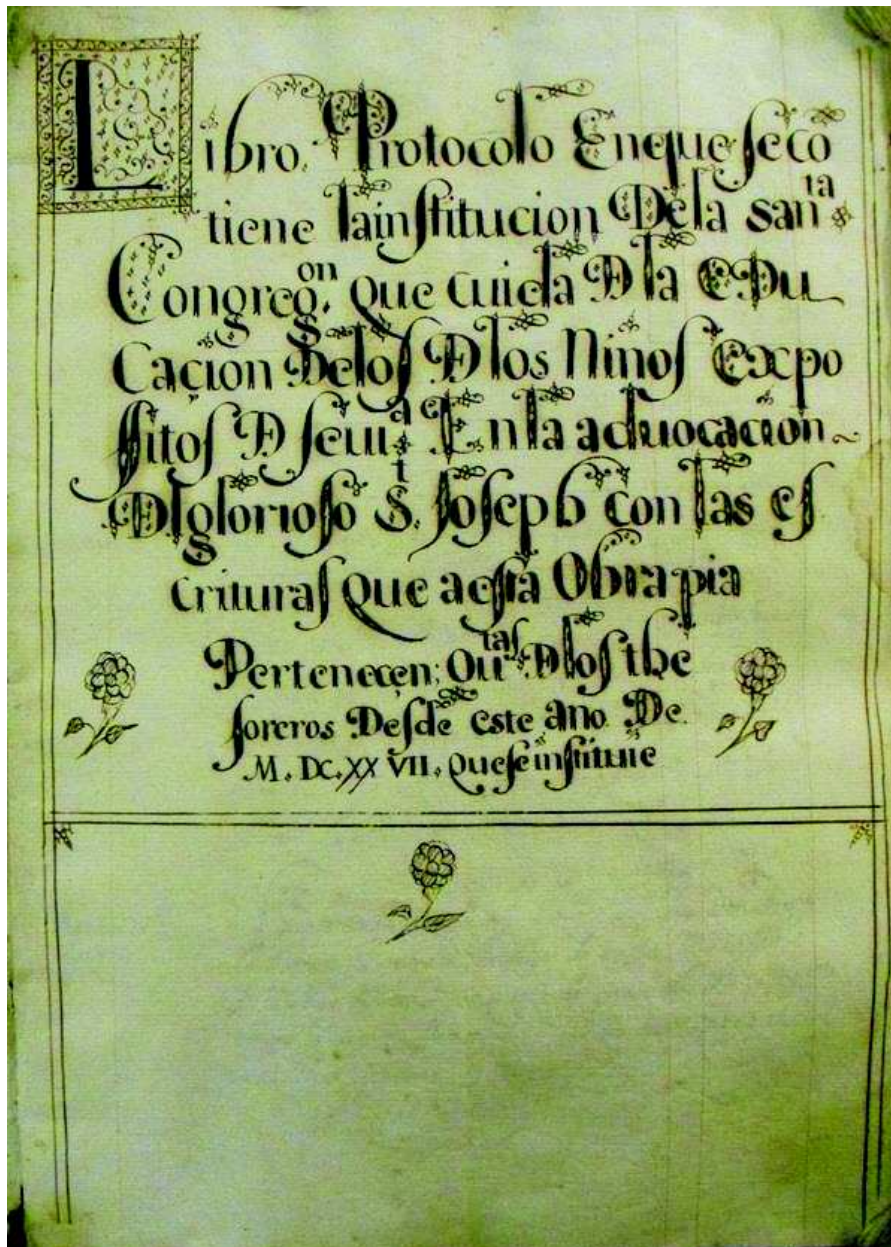 Libro. Protocolo Enque secõ
tiene lainstitucion Dela san^ta
Congreg^on. que cuida D la EDu
Cacion Delos D los Niños Expo
sitos D sevi^a En la aduocacion
Dl glorioso S^t. Joseph con las es
crituras que aesta Obra pia
Pertenecen; Qu^tas D los the
soreros Desde este año De
M. DC. XX VII. que se instituie